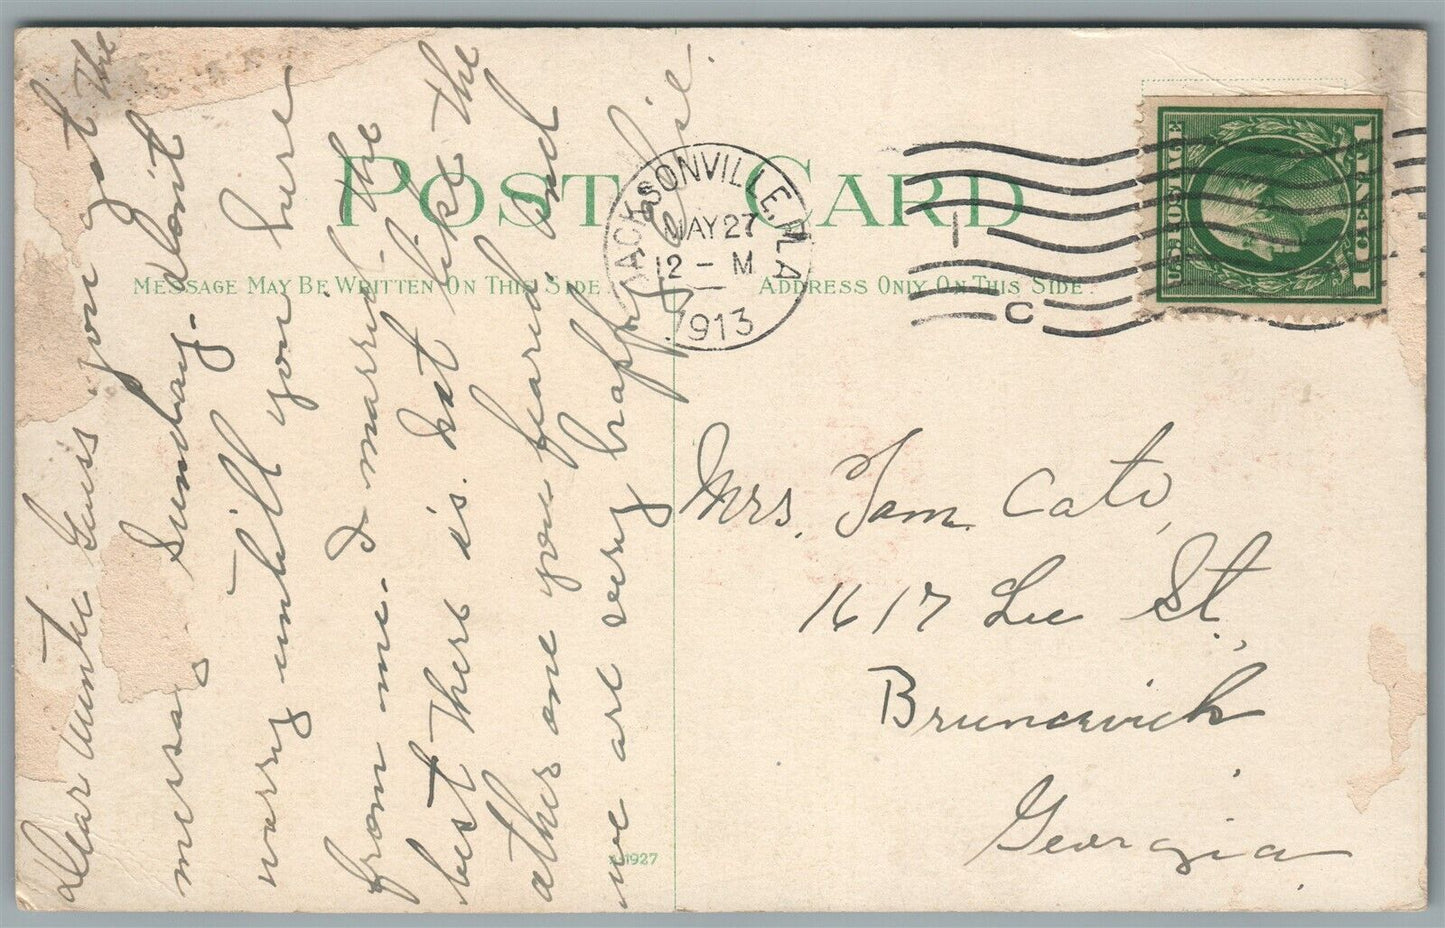 Dear Auntie Guess you got the
message Sunday. don't
worry untill you hear
from me. I married the
best there is. Not like the
other one you feared and
we are very happy
POST CARD
MESSAGE MAY BE WRITTEN ON THIS SIDE
ADDRESS ONLY ON THIS SIDE
JACKSONVILLE, FLA.
MAY 27
12 – M
1913
1
C
U.S. POSTAGE
1 CENT 1
Mrs. Tom Cato,
1617 Lee St.,
Brunswick
Georgia.
1927